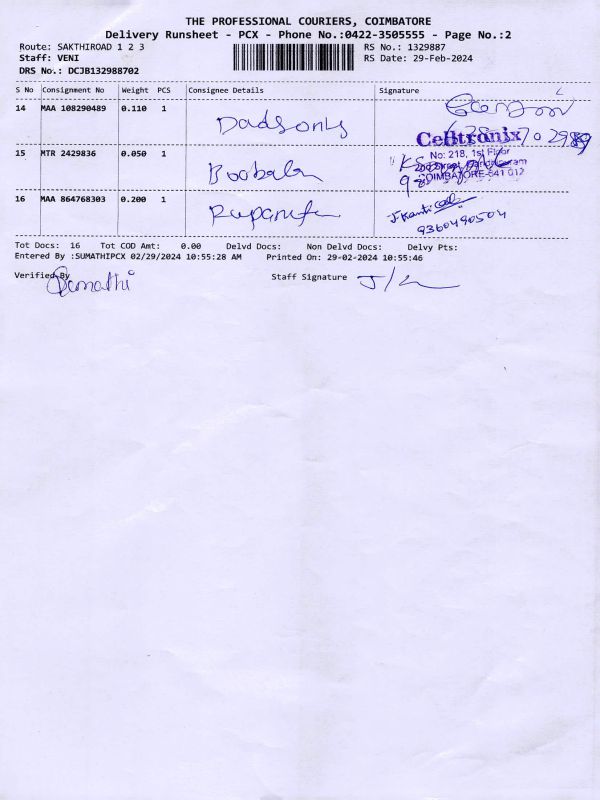 THE PROFESSIONAL COURIERS, COIMBATORE
Delivery Runsheet - PCX - Phone No.:0422-3505555 - Page No.:2
Route: SAKTHIROAD 1 2 3
RS No.: 1329887
Staff: VENI
RS Date: 29-Feb-2024
DRS No.: DCJB132988702
S No Consignment No Weight PCS Consignee Details Signature
14 MAA 108290489 0.110 1 Dadsons
Celltronix
No: 218, 1st Floor
15 MTR 2429836 0.050 1 Boobala
COIMBATORE-641 012
16 MAA 864768303 0.200 1
9360490504
Tot Docs: 16 Tot COD Amt: 0.00 Delvd Docs: Non Delvd Docs: Delvy Pts:
Entered By :SUMATHIPCX 02/29/2024 10:55:28 AM Printed On: 29-02-2024 10:55:46
Verified By Sumathi Staff Signature